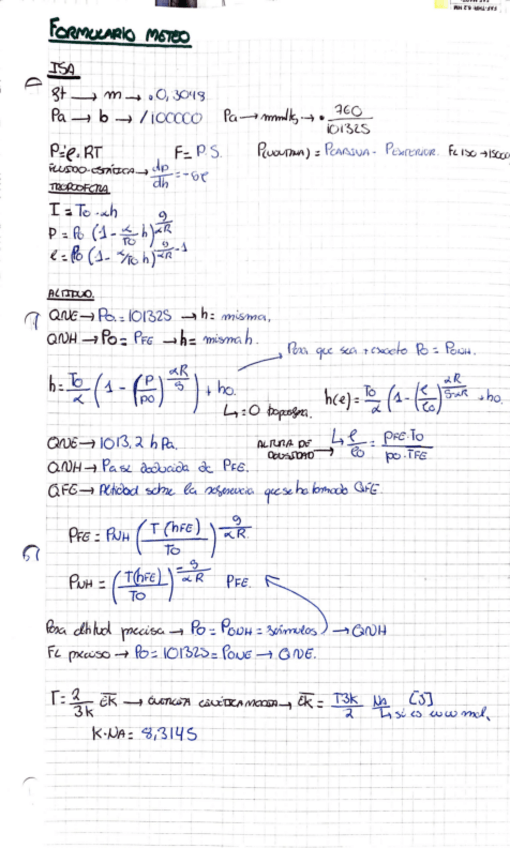 FORMULARIO METEO
ISA
ft → m → · 0,3048
Pa → b → /100000 Pa → mmHg → · 760/101325
P = ρ·RT F = P·S. P(
TROPOSFERA
FLUIDO-ESTÁTICA → dp/dh = -gρ
T = To - αh
P = Po (1 - α/To h)^(g/αR)
ρ = ρo (1 - α/To h)^(g/αR - 1)
ALTITUD.
QNE → Po = 101325 → h = misma.
QNH → Po = PFE → h = misma h.
Para que sea + exacto Po = PQNH.
h = To/α (1 - (P/po)^(αR/g)) + ho. h(ρ) = To/α (1 - (ρ/ρo)^(αR/g-αR)) + ho.
↳ = 0
QNE → 1013,2 hPa. ALTURA DE DENSIDAD → ↳ ρ/ρo = PFE·To/po·TFE
QNH → Pa se deducida de PFE.
QFE → Altitud sobre la referencia que se ha tomado QFE.
PFE = PNH (T(hFE)/To)^(g/αR)
PNH = (T(hFE)/To)^(-g/αR) PFE.
Para altitud precisa → Po = PQNH = 3 fórmulas → QNH
FL preciso → Po = 101325 = PQNE → QNE.
T = 2/3k EK → ENERGÍA CINÉTICA MEDIA → EK = T3k/2 Na [J]
↳ si es en un mol.
K·NA = 8,3145